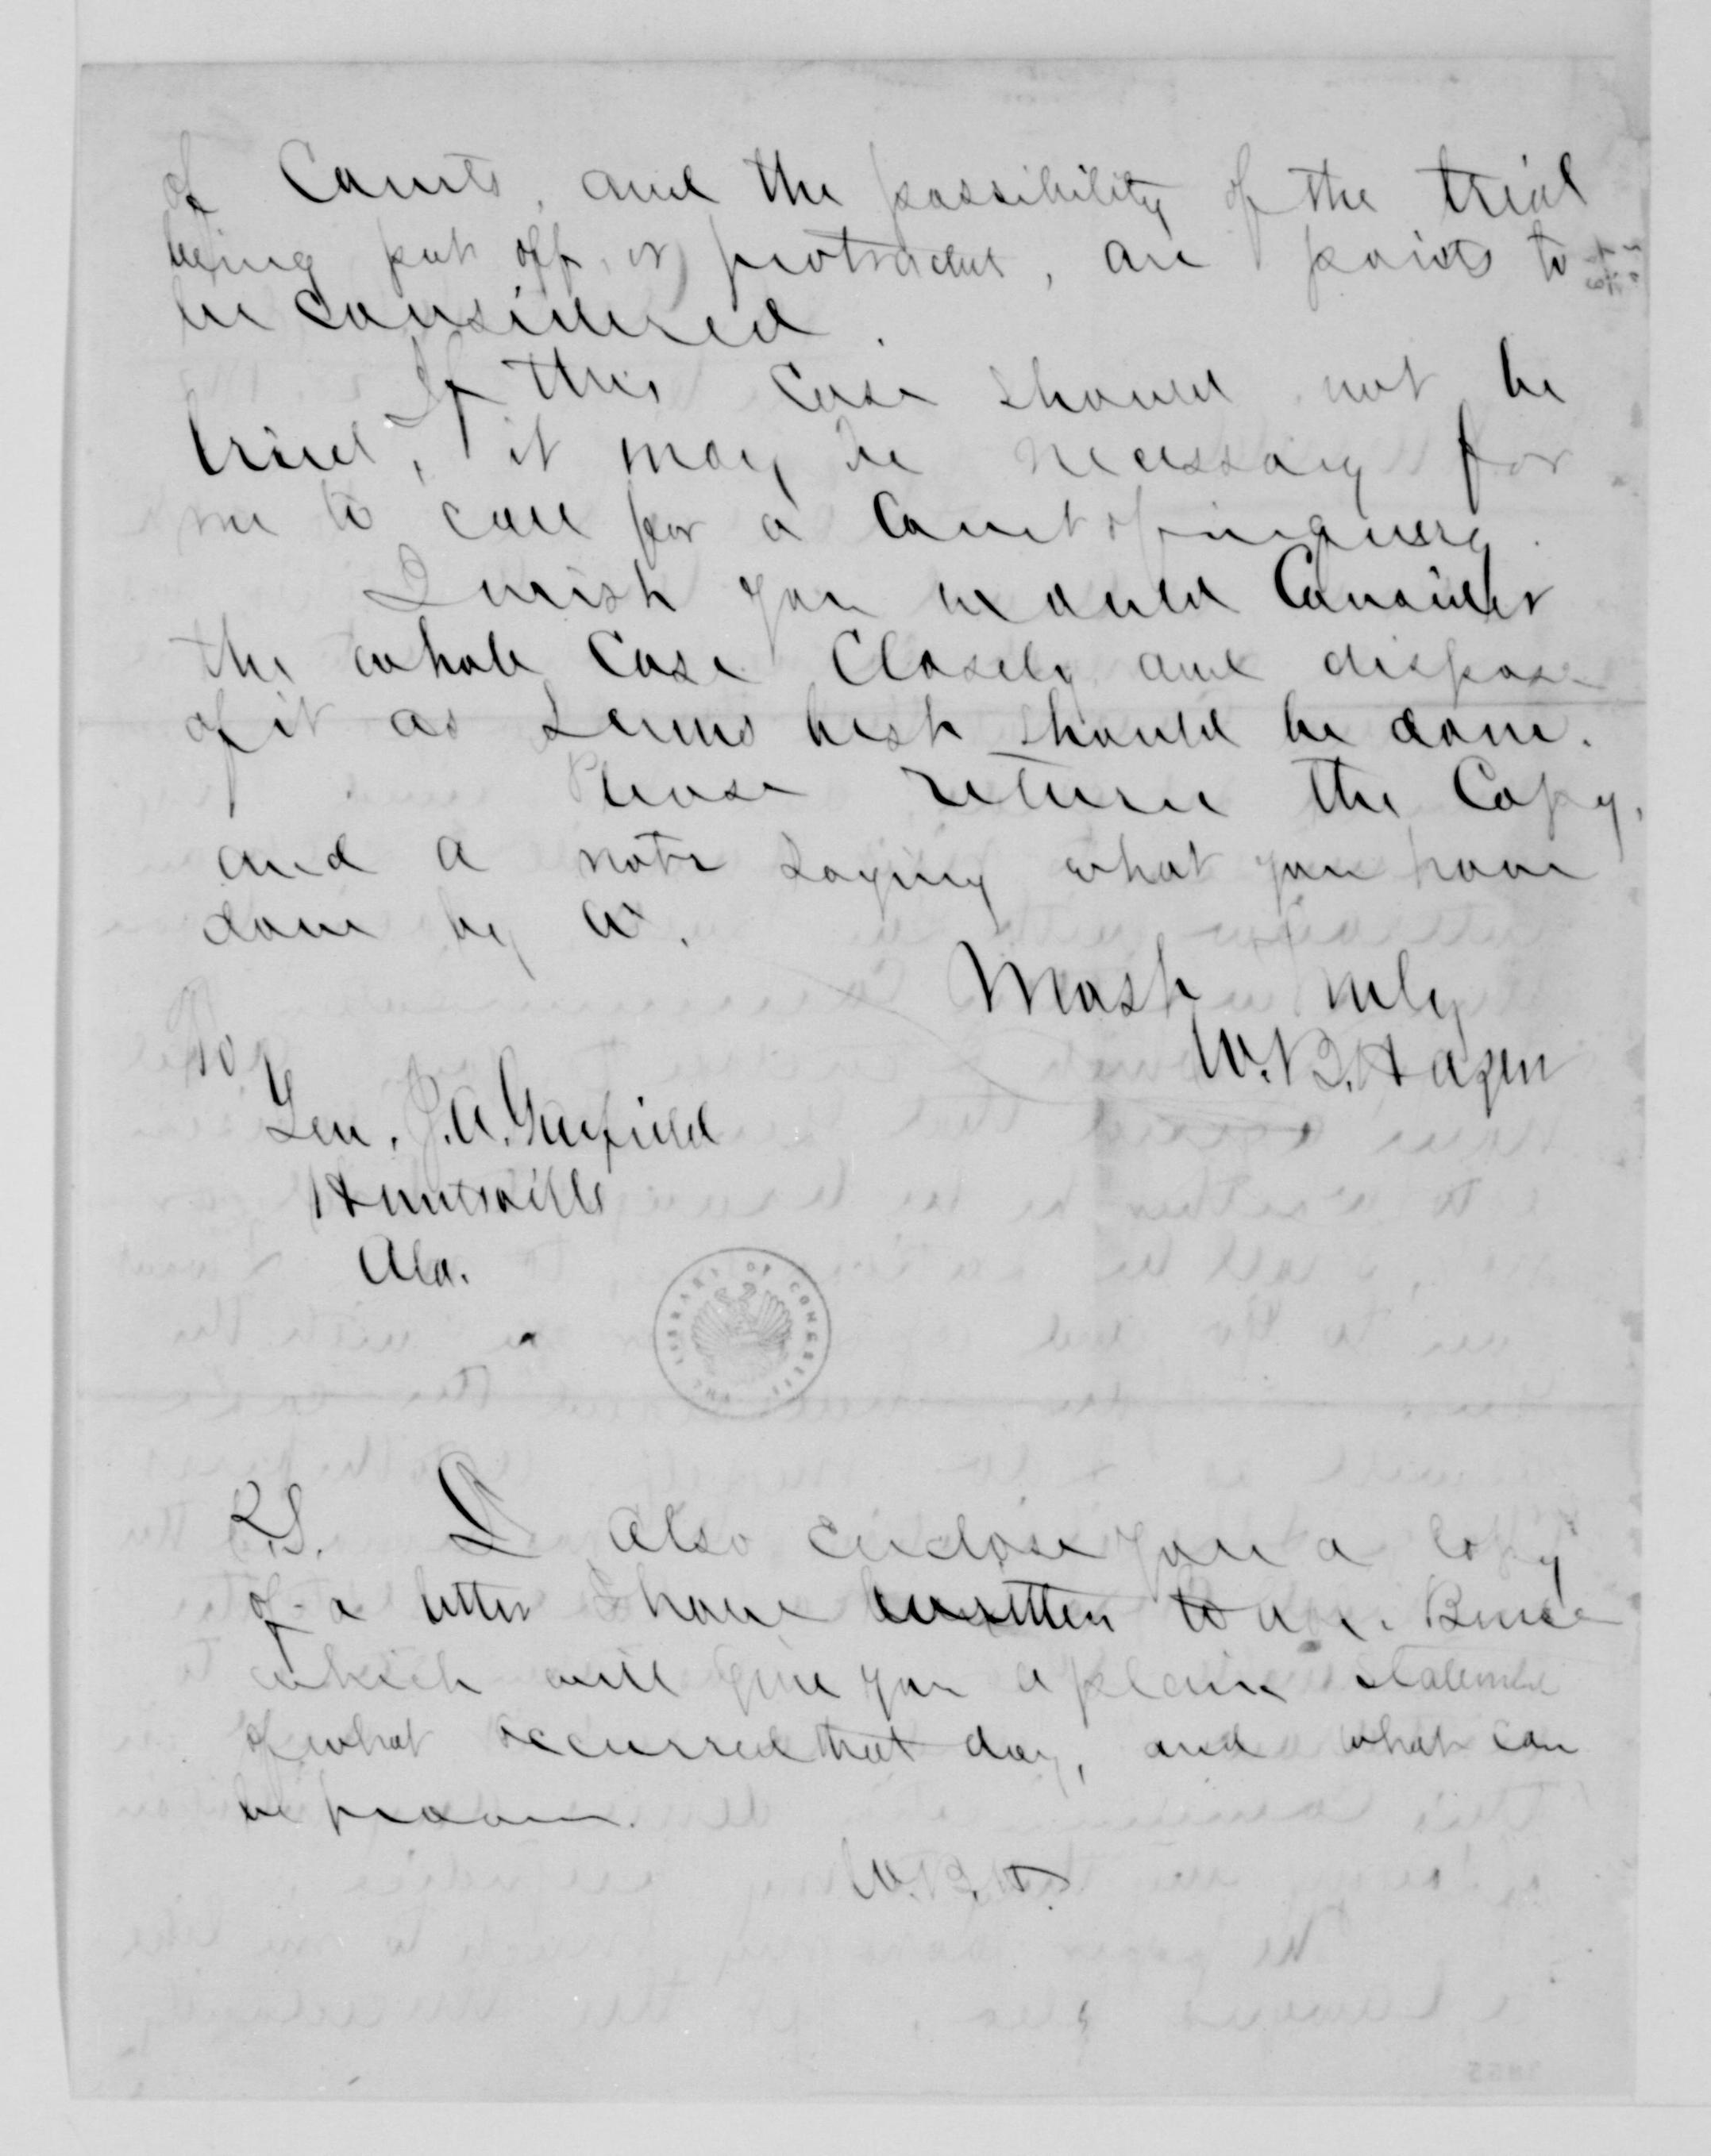 of Courts, and the possibility of the trial
being put off, or protracted, are points to
be considered.
If this case should not be
tried, it may be necessary for
me to call for a Court of inquiry.
I wish you would Consider
the whole Case Closely and dispose
of it as seems best should be done.
Please return the Copy,
and a note saying what you have
done by it.
Most truly
W. B. Hazen
To
Gen. J. A. Garfield
Huntsville
Ala.
THE LIBRARY OF CONGRESS
P.S. I also enclose you a copy
of a letter I have written to Bruce
which will give you a plain statement
of what occurred that day, and what can
be proven.
W. B. H.